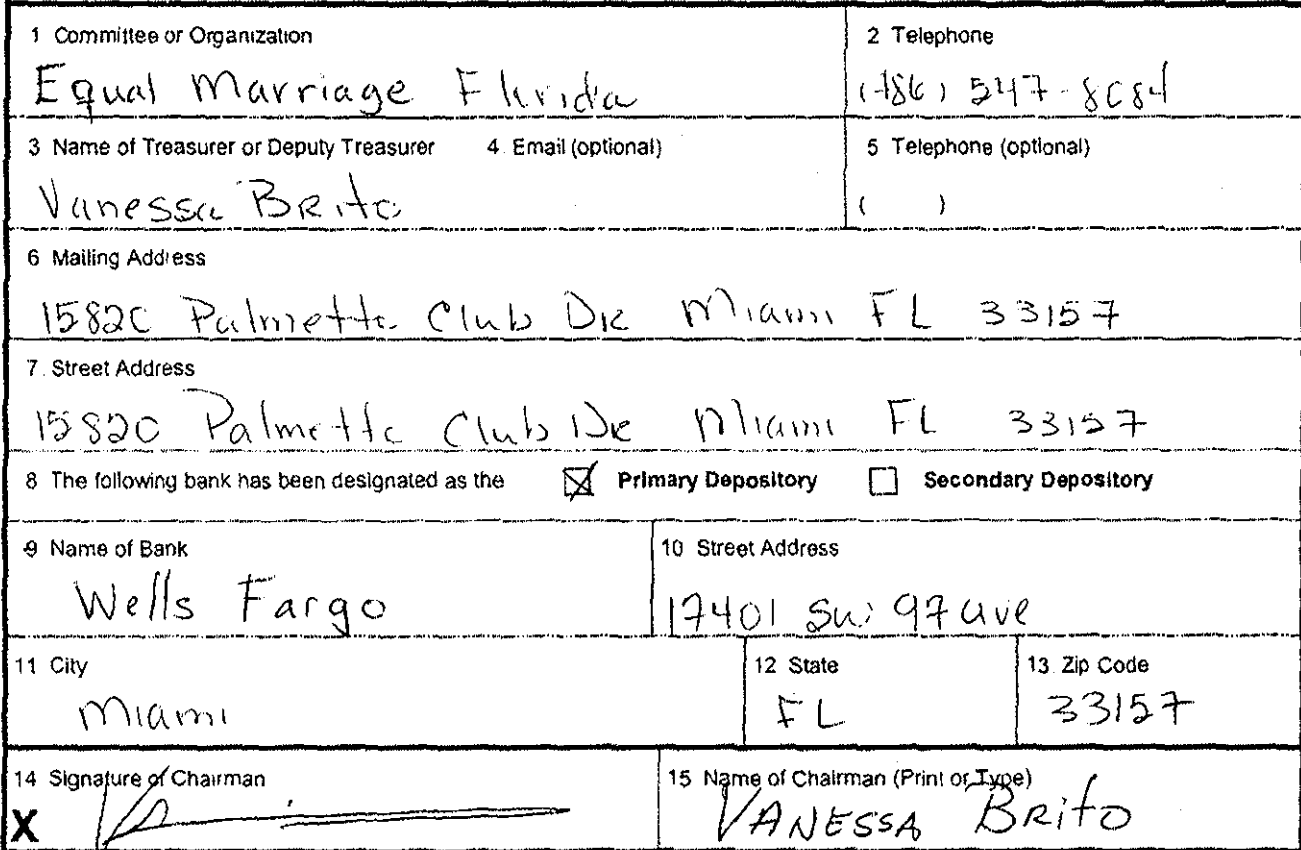 1 Committee or Organization 2 Telephone
Equal Marriage Florida (786) 547-8084
3 Name of Treasurer or Deputy Treasurer 4. Email (optional) 5 Telephone (optional)
Vanessa Brito ( )
6 Mailing Address
15820 Palmetto Club Dr Miami FL 33157
7. Street Address
15820 Palmetto Club Dr Miami FL 33157
8 The following bank has been designated as the Primary Depository Secondary Depository
9 Name of Bank 10 Street Address
Wells Fargo 17401 SW 97 ave
11 City 12 State 13. Zip Code
Miami FL 33157
14 Signature of Chairman 15 Name of Chairman (Print or Type)
X VANESSA BRITO